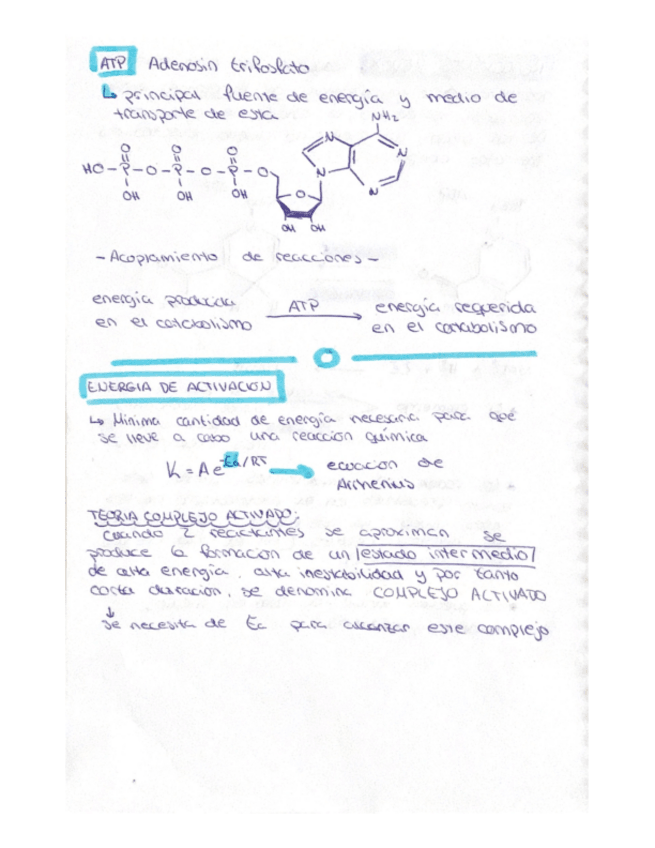 ATP Adenosin trifosfato
↳ principal fuente de energía y medio de
transporte de esta
NH₂
N
N
N
N
O O O
HO-P-O-P-O-P-O
OH OH OH
O
OH OH
- Acoplamiento de reacciones -
energía producida ATP energía requerida
en el catabolismo → en el anabolismo
ENERGIA DE ACTIVACION
↳ Minima cantidad de energía necesaria para que
se lleve a cabo una reaccion química
K = A e^-Ea/RT → ecuacion de
Arrhenius
TEORIA COMPLEJO ACTIVADO:
cuando 2 reactantes se aproximan se
produce la formacion de un estado intermedio
de alta energía, alta inestabilidad y por tanto
corta duracion, se denomina COMPLEJO ACTIVADO
↓
se necesita de Ea para alcanzar este complejo